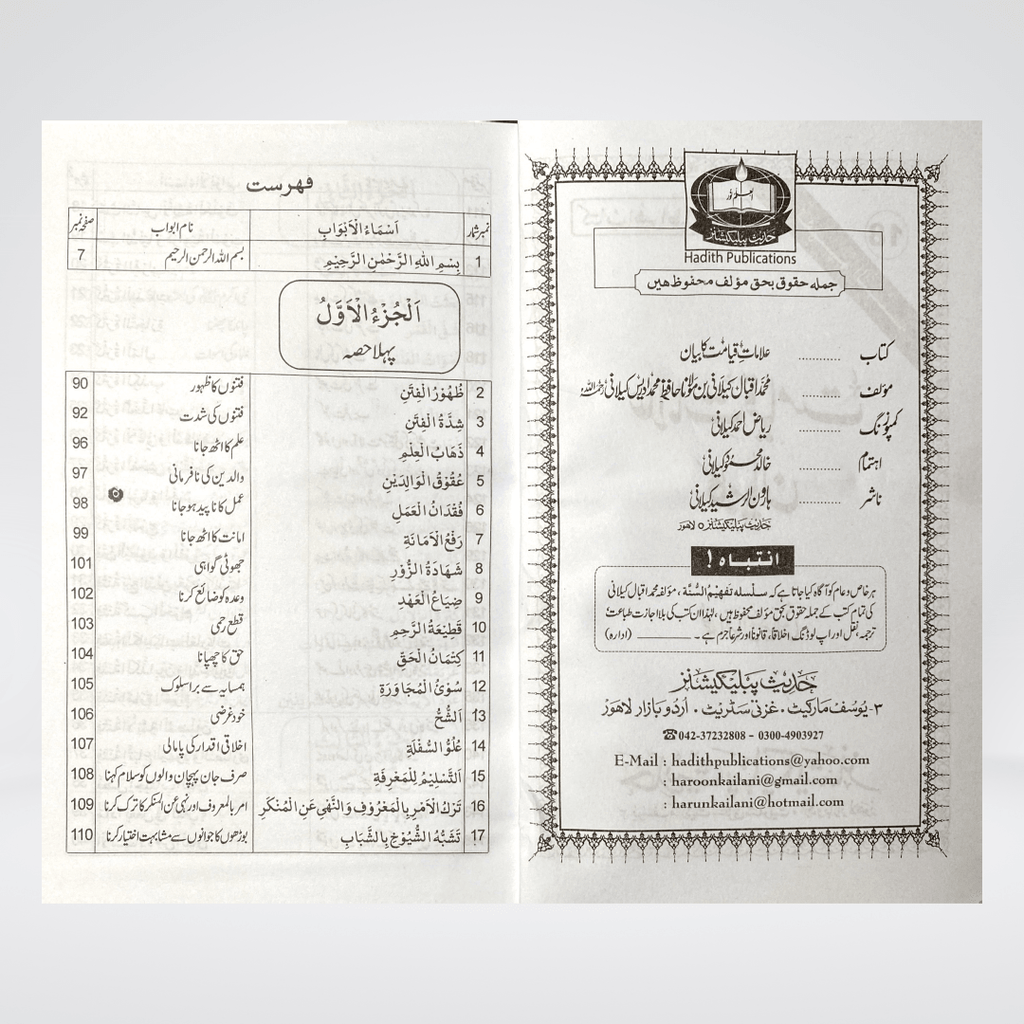 العلم نور
حدیث پبلیکیشنز
Hadith Publications
جمله حقوق بحق مؤلف محفوظ هیں
کتاب .......... علاماتِ قیامت کا بیان
مؤلف .......... محمد اقبال کیلانی بن مولانا حافظ محمد ادریس کیلانی رحمہ اللہ
کمپوزنگ .......... ریاض احمد کیلانی
اہتمام .......... خالد محمود کیلانی
ناشر .......... ہارون الرشید کیلانی
حدیث پبلیکیشنز لاہور
انتباہ !
ہر خاص و عام کو آگاہ کیا جاتا ہے کہ سلسلہ تفہیم السنۃ، مؤلفہ محمد اقبال کیلانی
کی تمام کتب کے جملہ حقوق بحق مؤلف محفوظ ہیں، لہٰذا ان کتب کی بلا اجازت طباعت
ترجمہ، نقل اور اپ لوڈنگ اخلاقاً، قانوناً اور شرعاً جرم ہے۔ ــــــــــ (ادارہ)
حدیث پبلیکیشنز
۳- یوسف مارکیٹ۔ غزنی سٹریٹ۔ اُردو بازار لاہور
☎042-37232808 - 0300-4903927
E-Mail : hadithpublications@yahoo.com
: haroonkailani@gmail.com
: harunkailani@hotmail.com
فهرست
نمبر شمار اَسْمَاءُ الْاَبْوَابِ نام ابواب صفحہ نمبر
1 بِسْمِ اللهِ الرَّحْمٰنِ الرَّحِيْمِ بسم اللہ الرحمن الرحیم 7
اَلْجُزْءُ الْاَوَّلُ
پہلا حصہ
2 ظُهُوْرُ الْفِتَنِ فتنوں کا ظہور 90
3 شِدَّةُ الْفِتَنِ فتنوں کی شدت 92
4 ذَهَابُ الْعِلْمِ علم کا اٹھ جانا 96
5 عُقُوْقُ الْوَالِدَيْنِ والدین کی نافرمانی 97
6 فُقْدَانُ الْعَمَلِ عمل کا ناپید ہو جانا 98
7 رَفْعُ الْاَمَانَةِ امانت کا اٹھ جانا 99
8 شَهَادَةُ الزُّوْرِ جھوٹی گواہی 101
9 ضِيَاعُ الْعَهْدِ وعدہ کو ضائع کرنا 102
10 قَطِيْعَةُ الرَّحِمِ قطع رحمی 103
11 كِتْمَانُ الْحَقِّ حق کا چھپانا 104
12 سُوْئُ الْمُجَاوَرَةِ ہمسایہ سے برا سلوک 105
13 اَلشُّحُّ خود غرضی 106
14 عُلُوُّ السُّفْلَةِ اخلاقی اقدار کی پامالی 107
15 اَلتَّسْلِيْمُ لِلْمَعْرِفَةِ صرف جان پہچان والوں کو سلام کہنا 108
16 تَرْكُ الْاَمْرِ بِالْمَعْرُوْفِ وَالنَّهْيِ عَنِ الْمُنْكَرِ امر بالمعروف اور نہی عن المنکر کا ترک کرنا 109
17 تَشَبُّهُ الشُّيُوْخِ بِالشَّبَابِ بوڑھوں کا جوانوں سے مشابہت اختیار کرنا 110